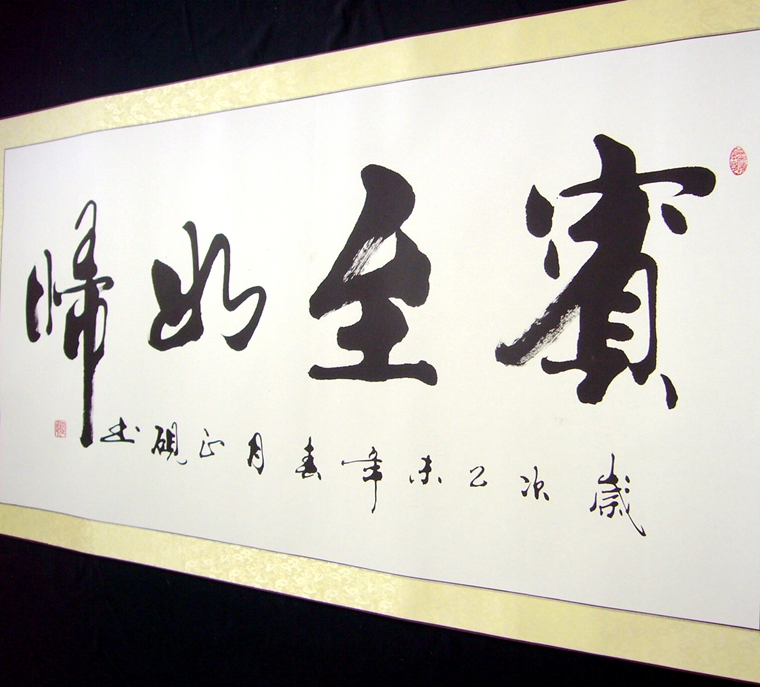 賓至如歸
歲次乙未年春月正硯书